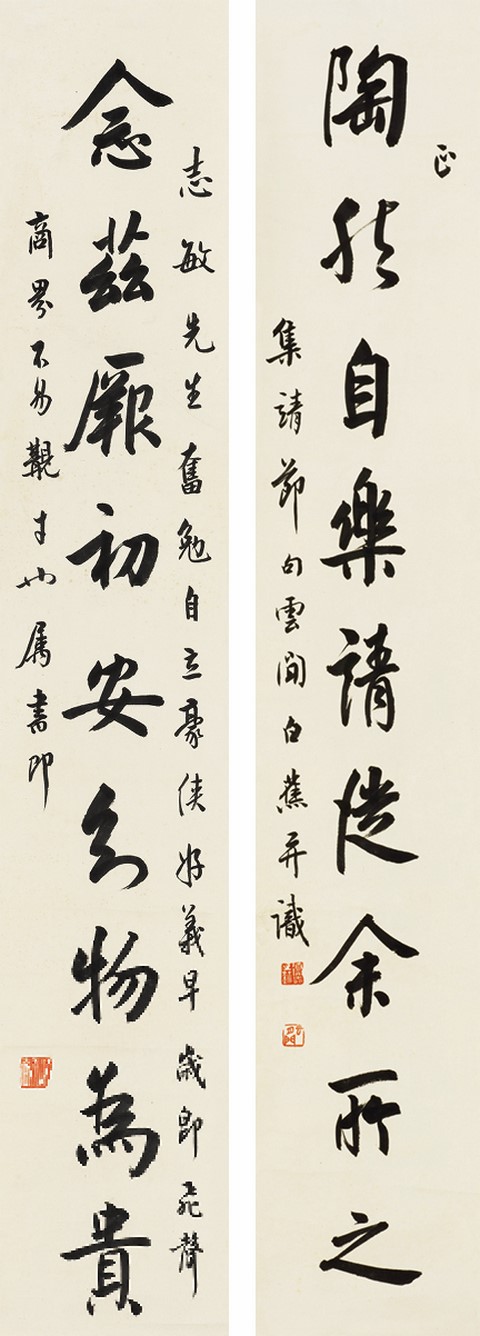 正
陶然自樂請從余所之
集靖節句雲間白蕉并識
志敏先生奮勉自立豪俠好義早歲即飛聲
念茲厥初安知物為貴
商界不易覯才也属書即